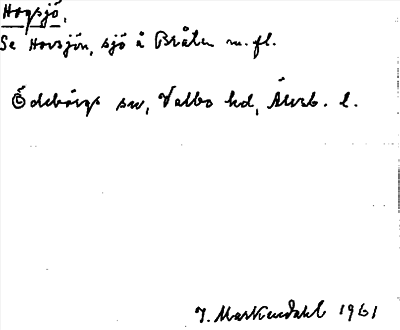 Hogsjö,
Se Horsjön, sjö å Bråten m. fl.
Ödeborgs sn, Valbo hd, Älvsb. l.
J. Markendahl 1961